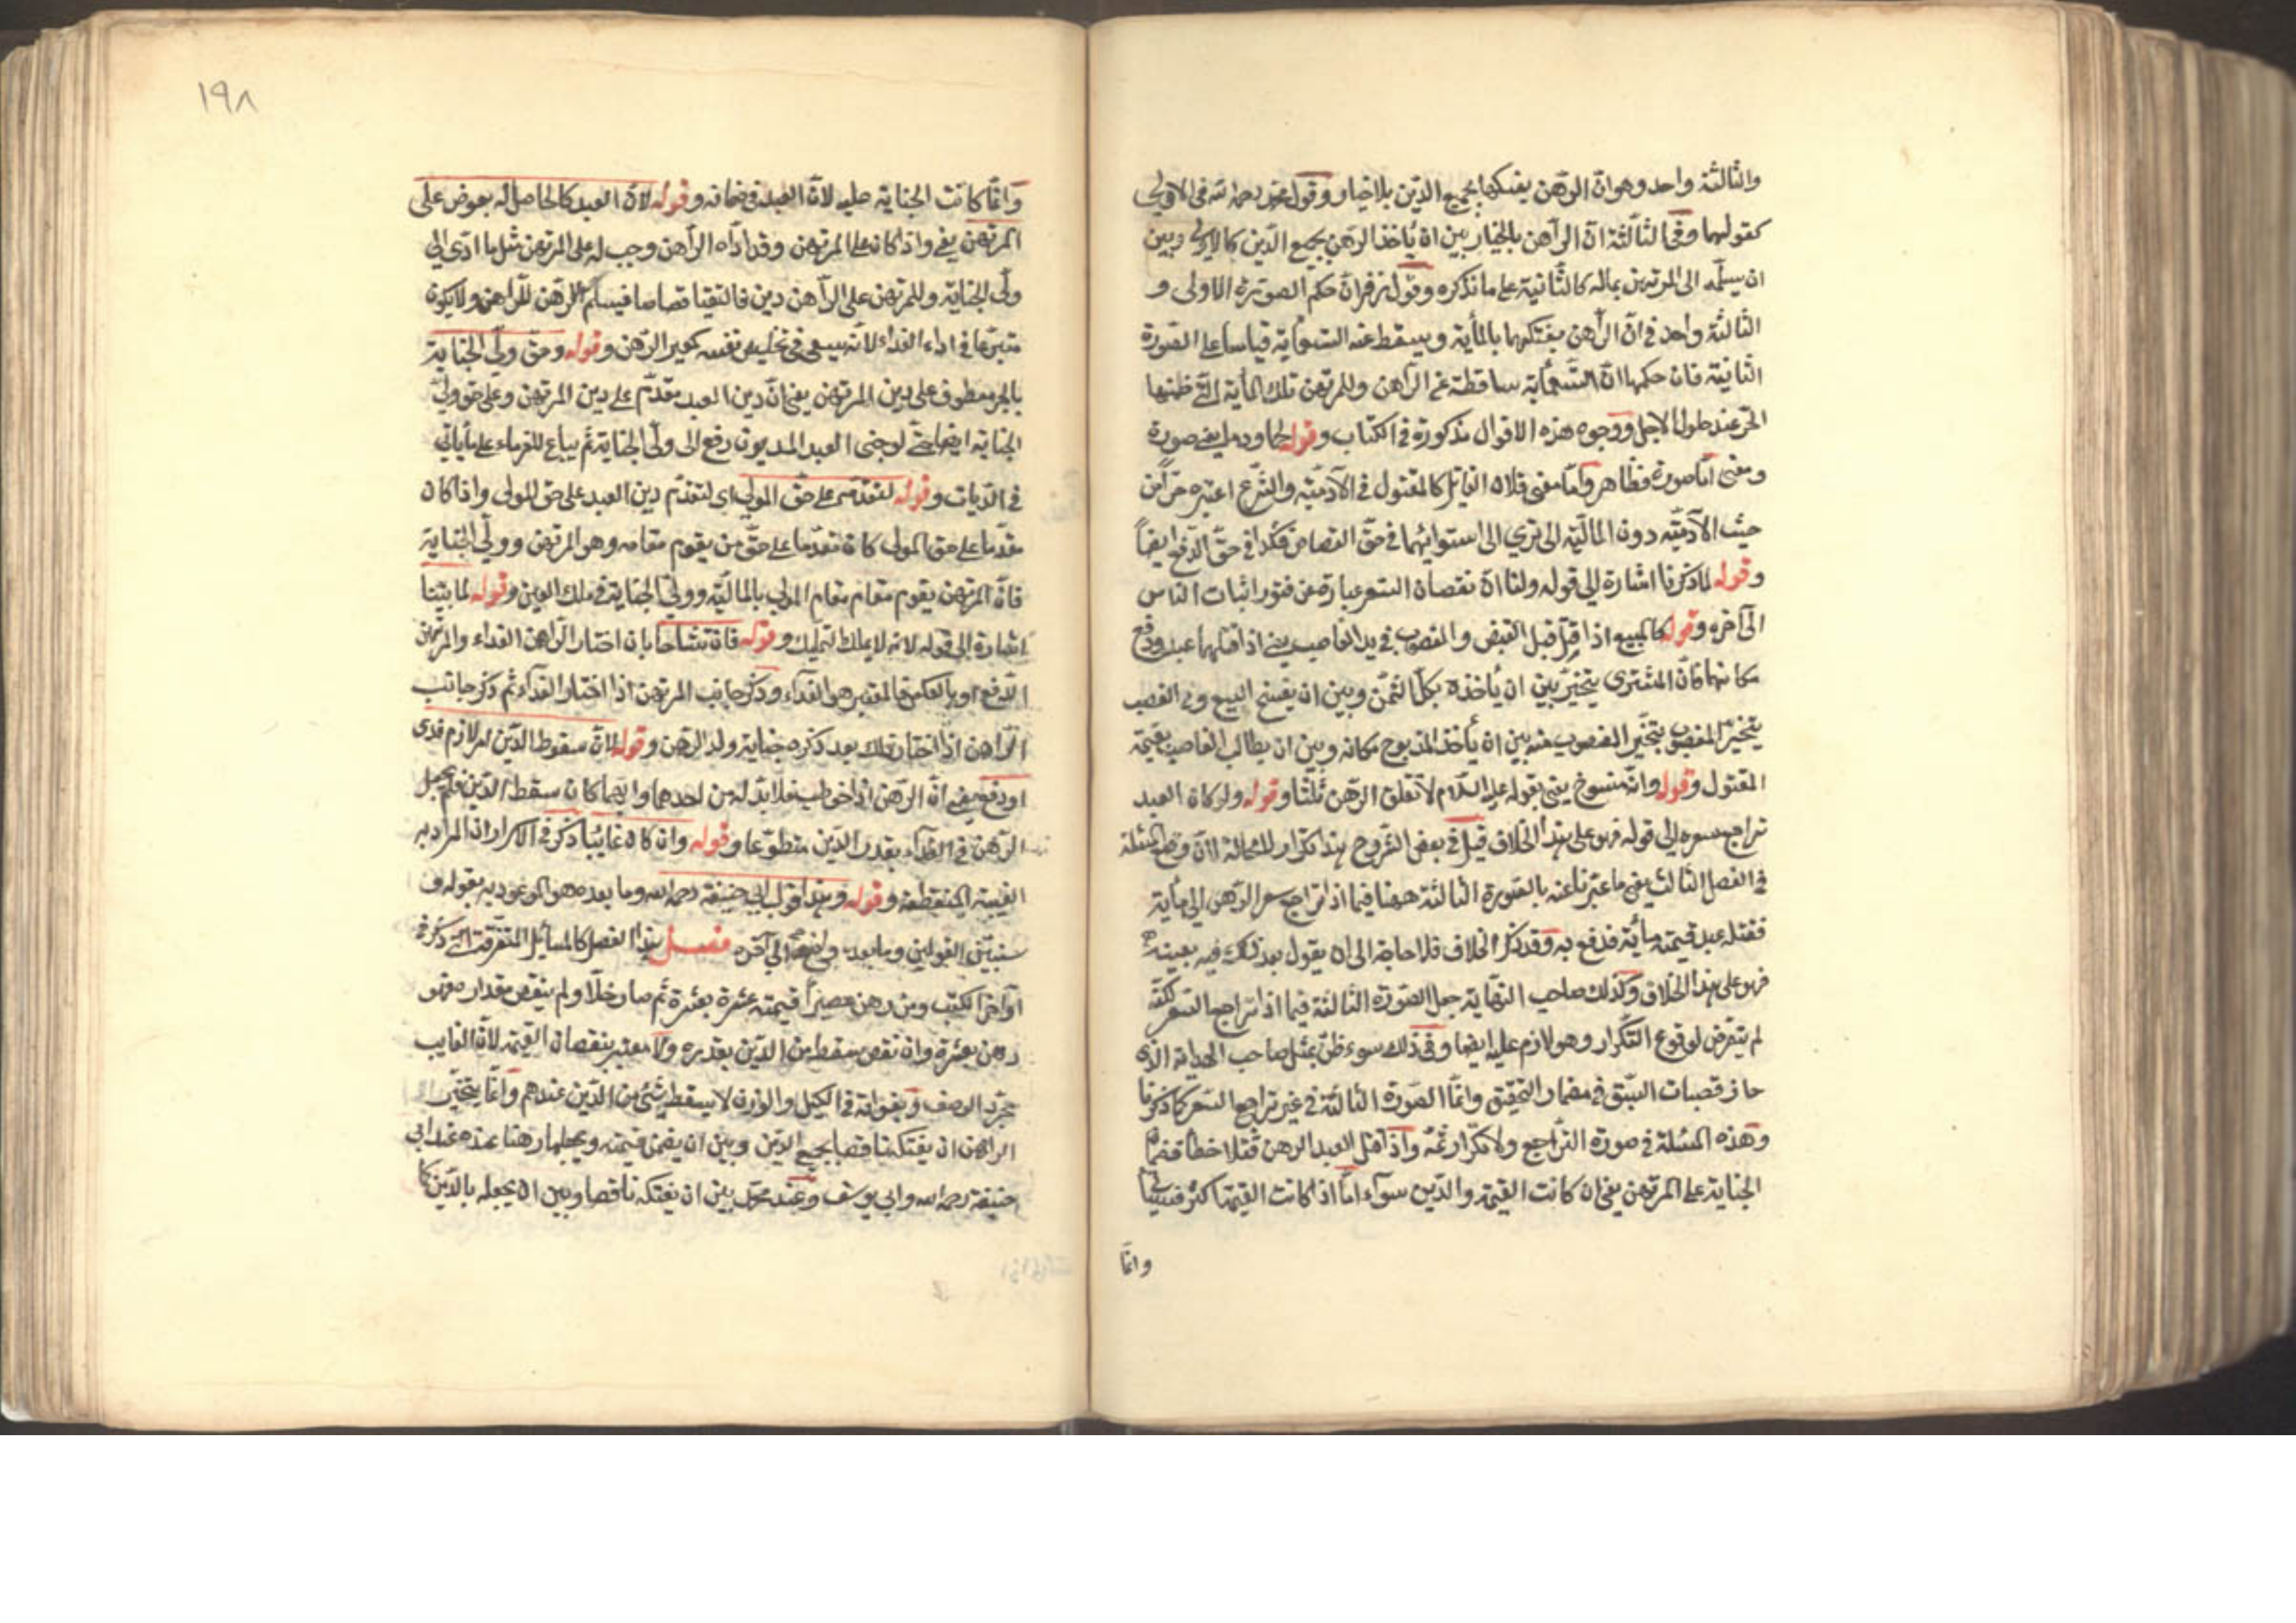 والثالثة واحد وهو ان الراهن يفتكها بجميع الدين بلا خيار وقول محمد رحمه الله في الاولى
كقولهما وفي الثالثة ان الراهن بالخيار بين ان يأخذ الرهن بجميع الدين كالاولى وبين
ان يسلمه الى المرتهن بماله كالثانية على ما نذكره وقول زفر ان حكم الصورة الاولى و
الثالثة واحد في ان الراهن يفتكها بالمأية ويسقط عنه التسعماية قياسا على الصورة
الثانية فان حكمها ان التسعماية ساقطة عن الراهن وللمرتهن تلك المأية التي
الحر عند حلول الاجل ووجوه هذه الاقوال مذكورة في الكتاب وقوله لحما ودما يعني صورة
ومعنى اما صورة فظاهر واما معنى فلان القاتل كالمقتول في الآدمية والشرع اعتبره جزأ من
حيث الآدمية دون المالية الا ترى الى استوائهما في حق القصاص فكذا في حق الدفع ايضاً
وقوله لما ذكرنا اشارة الى قوله ولنا ان نقصان السعر عبارة عن فتور رغبات الناس
الى آخره وقوله كالمبيع اذا قتل قبل القبض والمغصوب في يد الغاصب يعني اذا قتلهما عبد ودفع
مكانهما فان المشترى يتخير بين ان يأخذه بكل الثمن وبين ان يفسخ البيع وفي الغصب
يتخير المغصوب يتخير المغصوب منه بين ان يأخذ المدفوع مكانه وبين ان يطالب الغاصب بقيمة
المقتول وقوله وانه منسوخ يعني بقوله عليه السلام لا يغلق الرهن ثلثا وقوله ولو كان العبد
تراجع سعره الى قوله فهو على هذا الخلاف قيل في بعض الشروح هذا تكرار لا محالة لان وضع المسئلة
في الفصل الثالث يعني ما عبرنا عنه بالصورة الثالثة ههنا فيما اذا تراجع سعر الرهن الى مأية
فقتله عبد قيمته مأية فدفع به وقد ذكر الخلاف فلا حاجة الى ان يقول بعد ذلك فيه بعينه
فهو على هذا الخلاف وكذلك صاحب النهاية جعل الصورة الثالثة فيما اذا تراجع السعر لكنه
لم يتعرض لوقوع التكرار وهو لازم عليه ايضا وفي ذلك سوء ظن بمثل صاحب الهداية الذى
حاز قصبات السبق في مضمار التحقيق وانما الصورة الثالثة في غير تراجع السعر كما ذكرنا
وهذه المسئلة في صورة التراجع ولا تكرار ثمه واذا قتل العبد الرهن قتلا خطأ فضمان
الجناية على المرتهن يعني ان كانت القيمة والدين سوآء اما اذا كانت القيمة اكثر فسيأتي
وانما
١٩٨
وانما كانت الجناية عليه لان العبد في ضمانه وقوله لان العبد كالحاصل له بعوض على
المرتهن يعني واذا كان على المرتهن وقد اداه الراهن وجب له على المرتهن مثل ما ادى الى
ولي الجناية وللمرتهن على الراهن دين فالتقيا قصاصا فيسلم الرهن للراهن ولا يكون
متبرعا في اداء الفداء لانه يسعى في تخليص نفسه كمعير الرهن وقوله وحق ولي الجناية
بالجر معطوف على دين المرتهن يعني ان دين العبد مقدم على دين المرتهن وعلى حق ولي
الجناية ايضا حتى لو جنى العبد المديون دفع الى ولي الجناية ثم يباع للغرماء على ما يأتي
في الديات وقوله لتقدمه على حق المولى اى لتقدم دين العبد على حق المولى واذا كان
مقدما على حق المولى كان متقدما على حق من يقوم مقامه وهو المرتهن وولي الجناية
فان المرتهن يقوم مقام مقام المولى بالمالية وولي الجناية في ملك العين وقوله لما بينا
اشارة الى قوله لانه لا يملك التمليك وقوله فان تشاحا بان اختار الراهن الفداء والمرتهن
الدفع او بالعكس فالمعتبر هو الفداء وذكر جانب المرتهن اذا اختار الفدآء ثم ذكر جانب
الراهن اذا اختار ذلك بعد ذكره جناية ولد الرهن وقوله لان سقوط الدين امر لازم فدى
او دفع يعني ان الراهن اذا خوطب فلا بد له من احدهما وايهما كان سقط الدين فلم يجعل
الراهن في الفدآء بقدر الدين متطوعا وقوله وان كان غايبا ذكر في الاسرار ان المراد به
الغيبة المنقطعة وقوله وهذا قول ابي حنيفة رحمه الله وما بعده هو الموعود به بقوله و
سنبين القولين وما بعده واضح الى آخره فصل هذا الفصل كالمسائل المتفرقة التي ذكر في
اواخر الكتب ومن رهن عصيراً قيمته عشرة بعشرة ثم صار خلا ولم ينقص مقداره فهو
رهن بعشرة وان نقص سقط من الدين بقدره ولا معتبر بنقصان القيمة لان الفايت
مجرد الوصف وبفواته في الكيل والوزن لا يسقط شئ من الدين عندهم وانما يتخير
الراهن ان يفتكه ناقصا بجميع الدين وبين ان يضمن قيمته ويجعلها رهنا عنده عند ابي
حنيفة رحمه الله وابي يوسف وعند محمد بين ان يفتكه ناقصا وبين ان يجعله بالدين